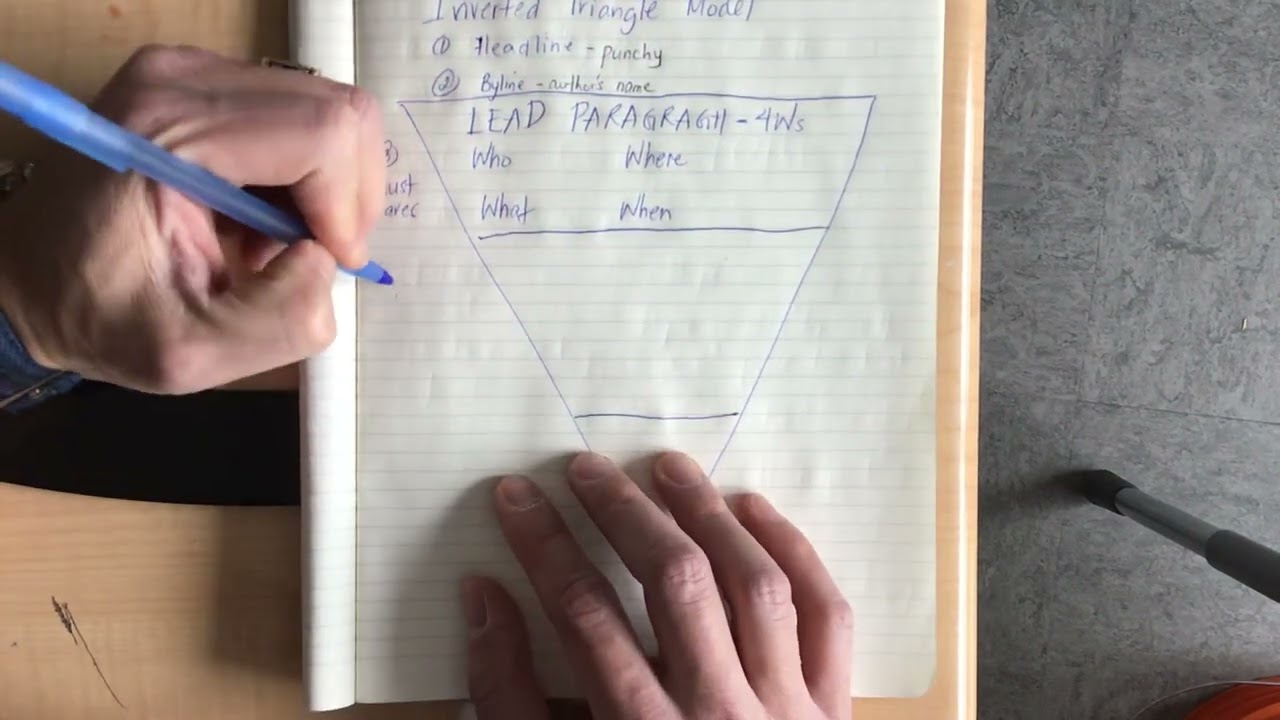 Inverted Triangle Model
① Headline - punchy
② Byline - author's name
LEAD PARAGRAGH - 4Ws
Who Where
What When